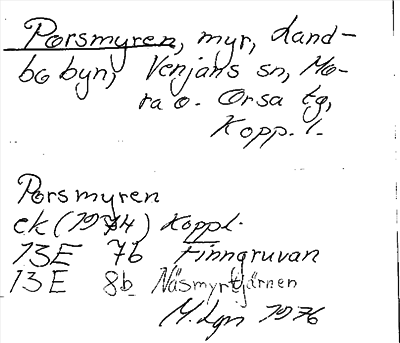 Porsmyren, myr, Land-
bobyn, Venjans sn, Mo-
ra o. Orsa tg,
Kopp. l.
Porsmyren
ek (1974) Koppl.
13E 7b Finngruvan
13E 8b Näsmyrtjärnen
M. Lgn 1976